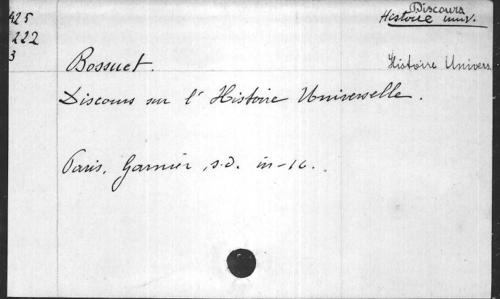 425
222
3
Discours
Histoire univ.
Histoire Univers
Bossuet.
Discours sur l' Histoire Universelle.
Paris, Garnier, s.d. in-16.